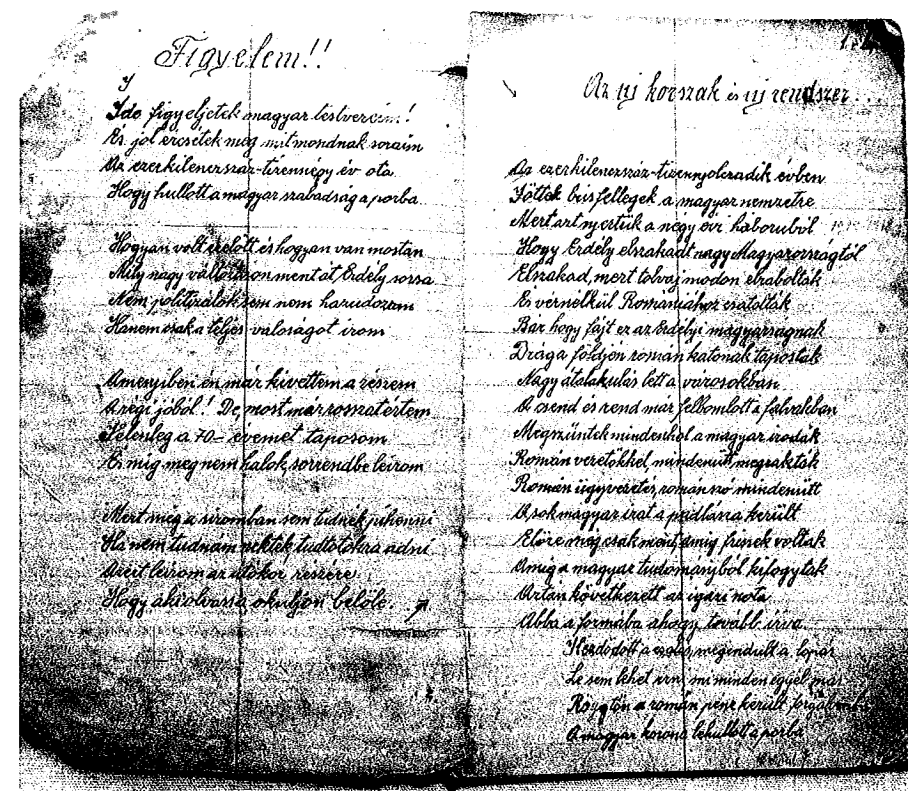 Figyelem!!
Ide figyeljetek magyar testvereim!
És jól ercsétek meg mit mondnak soraim
Az ezerkilencszáz-tizennégy év ota
Hogy hullott a magyar szabadság a porba
Hogyan volt ezelött és hogyan van mostan
Mily nagy változáson ment át Erdély sorsa
Nem politizálok sem nem hazudozom
Hanem csak a teljes valoságot irom
Amenyiben én már kivettem a részem
A régi jóból! De most már rosszat értem
Jelenleg a 70- évemet taposom
És mig meg nem halok, sorrendbe leirom
Mert még a siromban sem tudnék pihenni
Ha nem tudnám nektek tudtotokra adni
Azért leirom az utókor részére
Hogy aki olvassa okuljon belöle.
Az új korszak és új rendszer...
Az ezerkilencszáz-tizennyolcadik évben
Jöttek bús fellegek a magyar nemzetre
Mert azt nyertük a négy évi háboruból
Hogy Erdély elszakadt nagy Magyarországtól
Elszakad, mert tolvaj modon elrabolták
És vérnélkül Romániához csatolták
Bár hogy fájt ez az Erdélyi magyarságnak
Drága földjén román katonák tapostak
Nagy átalakulás lett a városokban
A csend és rend már felbomlott a falvakban
Megszüntek mindenhol a magyar irodák
Román vezetökkel mindenütt megrakták
Román ügyvezetés, román szó mindenütt
A sok magyar irat a padlásra került
Elöre még csak ment, amig frissek voltak
Amig a magyar tudományból kifogytak
Aztán következett az igazi nota
Abba a formába ahogy tovább irva
Kezdödött a csalás, megindult a lopás
Le sem lehet irni mi minden egyel más
Rögtön a román pénz került forgalomba
A magyar korona lehullott a porba